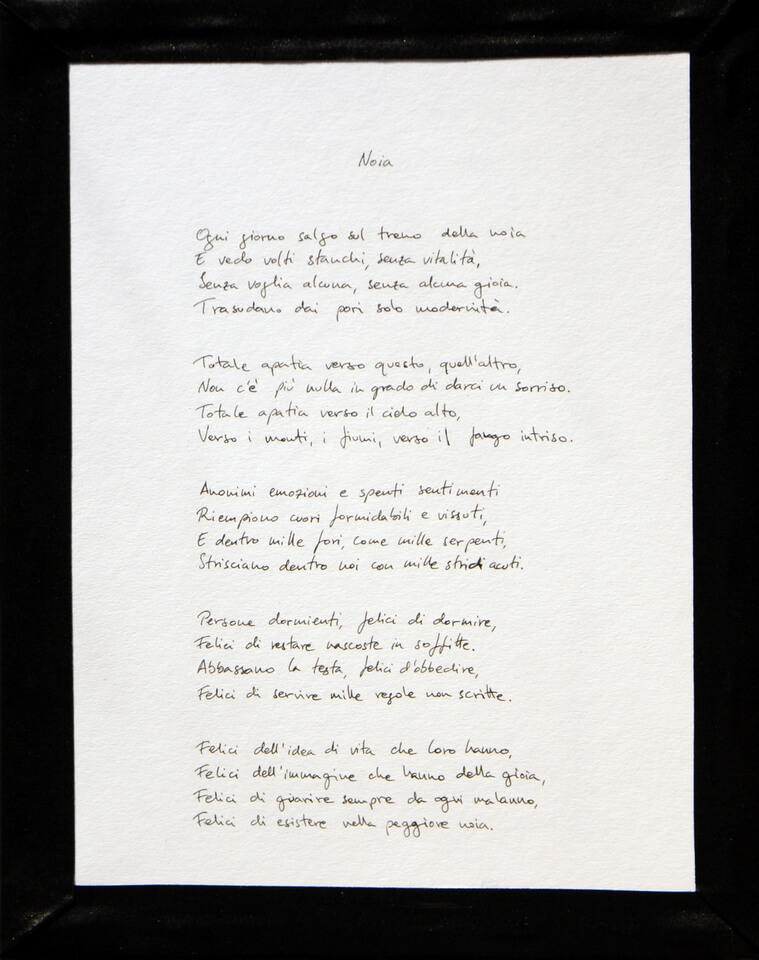 Noia
Ogni giorno salgo sul treno della noia
E vedo volti stanchi, senza vitalità,
Senza voglia alcuna, senza alcuna gioia.
Trasudano dai pori solo modernità.
Totale apatia verso questo, quell'altro,
Non c'è più nulla in grado di darci un sorriso.
Totale apatia verso il cielo alto,
Verso i monti, i fiumi, verso il fango intriso.
Anonimi emozioni e spenti sentimenti
Riempiono cuori formidabili e vissuti,
E dentro mille fori, come mille serpenti,
Strisciano dentro noi con mille stridi acuti.
Persone dormienti, felici di dormire,
Felici di restare nascoste in soffitte.
Abbassano la testa, felici d'obbedire,
Felici di servire mille regole non scritte.
Felici dell'idea di vita che loro hanno,
Felici dell'immagine che hanno della gioia,
Felici di guarire sempre da ogni malanno,
Felici di esistere nella peggiore noia.